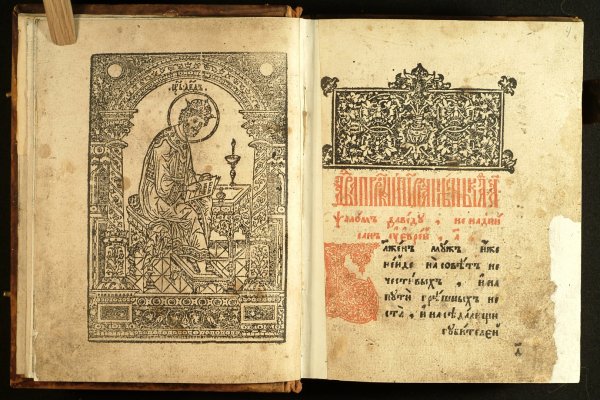 ѱалом давидꙋ , не надпи
санъ ꙋ еврей , а҃
Блаженъ мꙋжъ иже
не иде на совѣтъ не
честивыхъ , и на
пꙋти грѣшныхъ не
ста , и на сѣдалищи
гꙋбителей